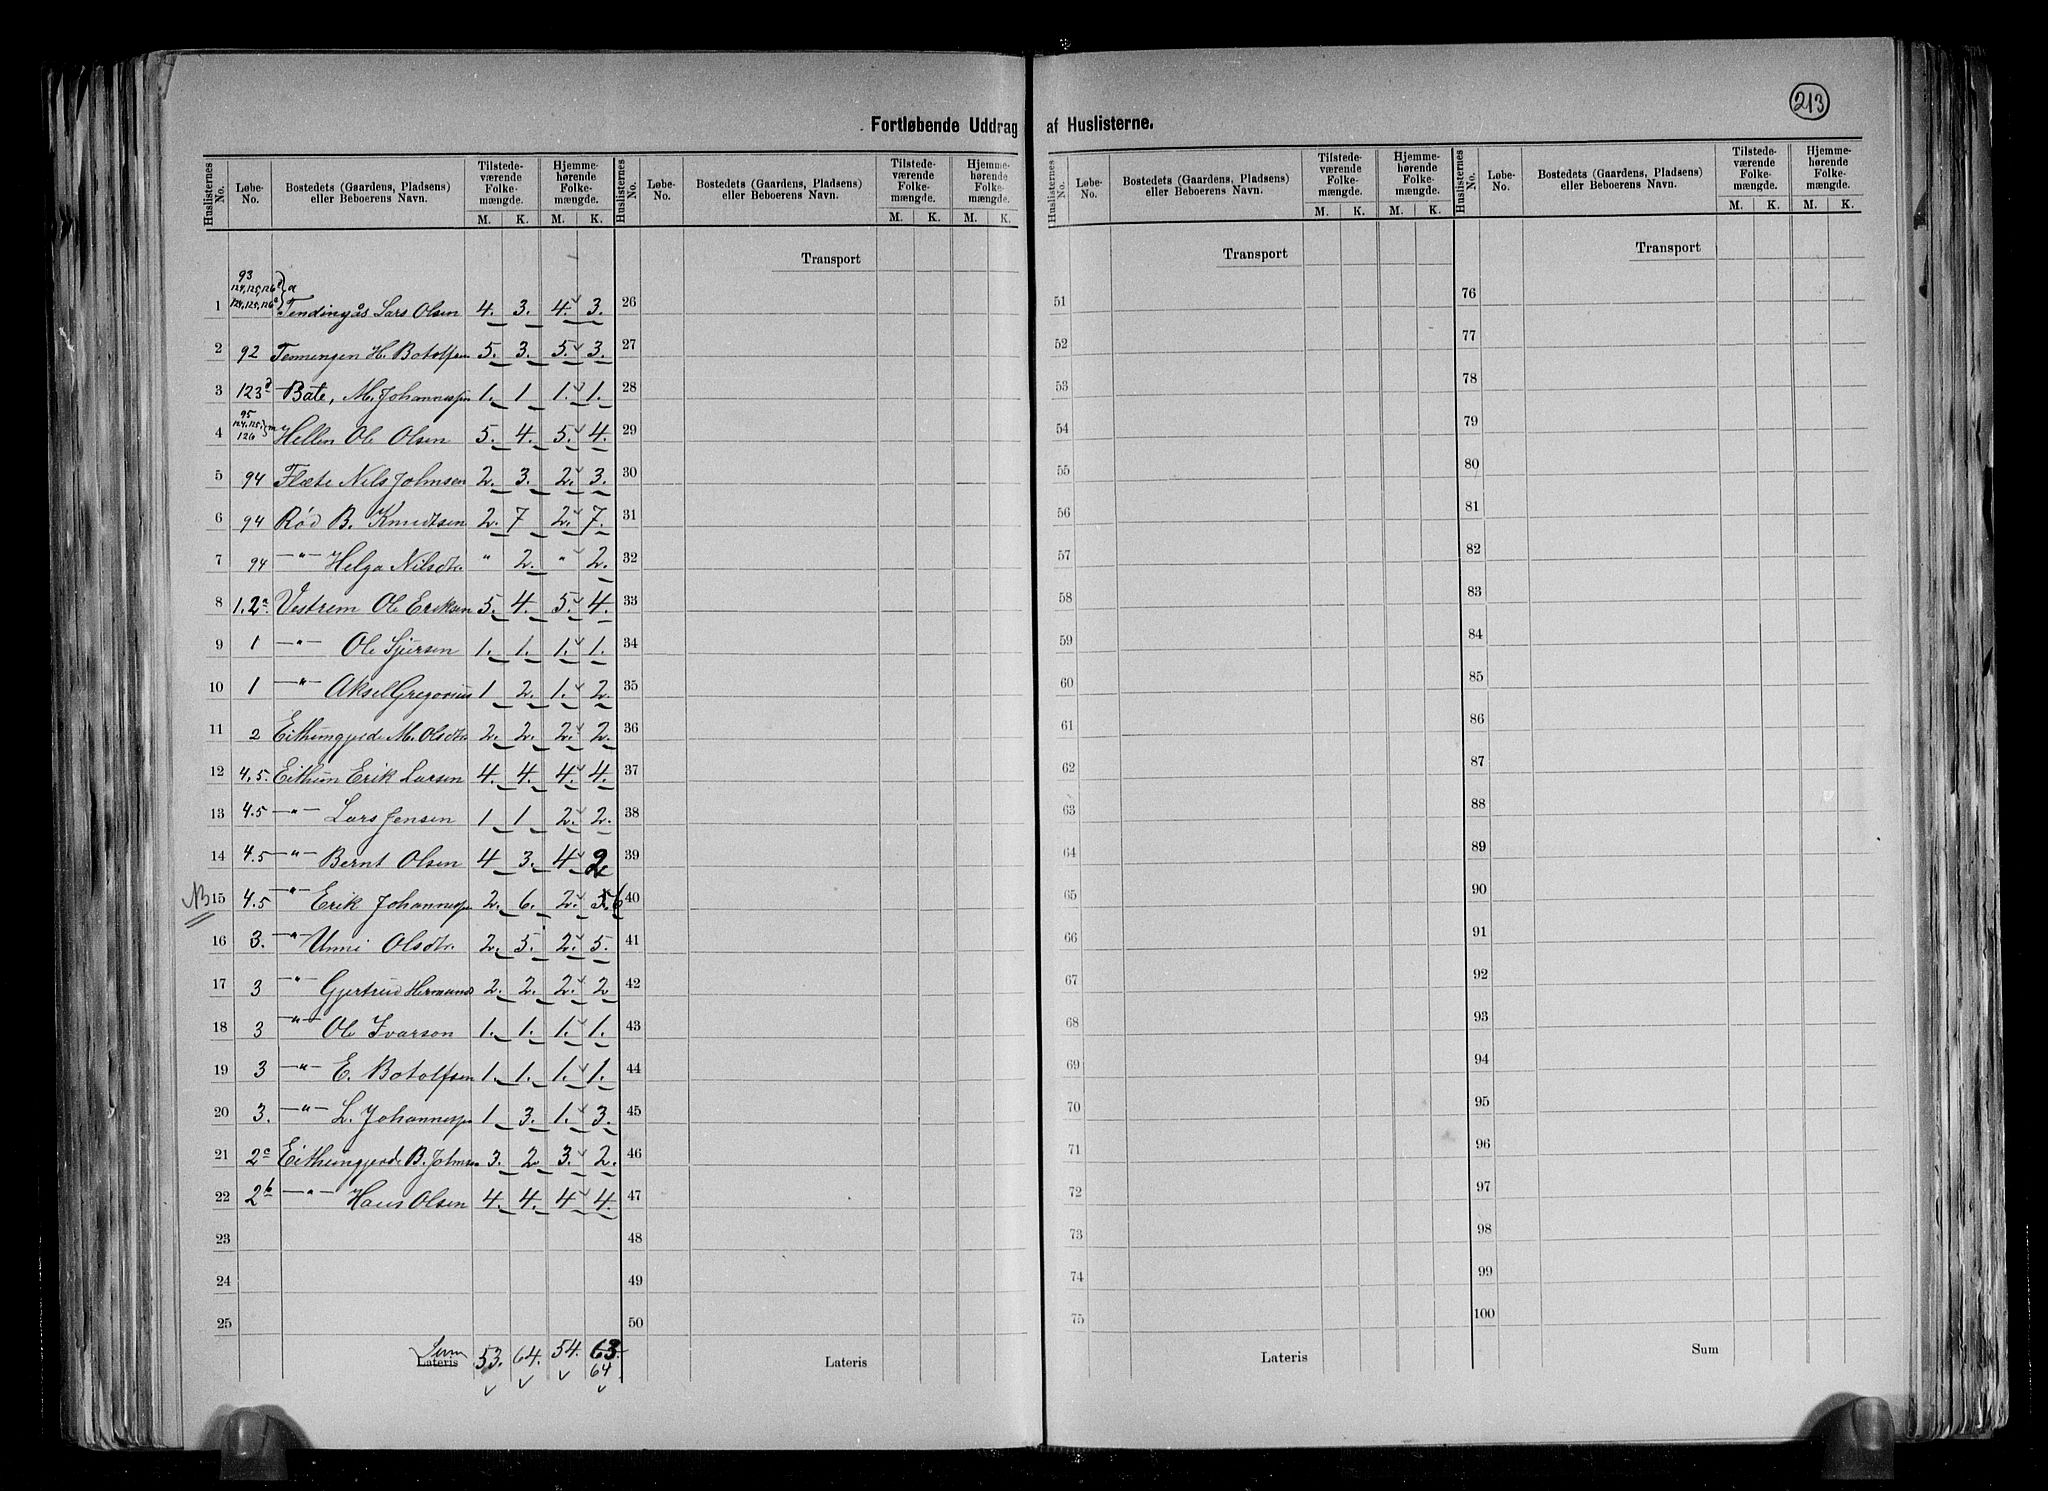 213
Fortløbende Uddrag af Huslisterne.
Huslisternes No. Løbe-No. Bostedets (Gaardens, Pladsens) eller Beboerens Navn. Tilstedeværende Folkemængde. M. K. Hjemmehørende Folkemængde. M. K.
Huslisternes No. Løbe-No. Bostedets (Gaardens, Pladsens) eller Beboerens Navn. Tilstedeværende Folkemængde. M. K. Hjemmehørende Folkemængde. M. K.
Huslisternes No. Løbe-No. Bostedets (Gaardens, Pladsens) eller Beboerens Navn. Tilstedeværende Folkemængde. M. K. Hjemmehørende Folkemængde. M. K.
Huslisternes No. Løbe-No. Bostedets (Gaardens, Pladsens) eller Beboerens Navn. Tilstedeværende Folkemængde. M. K. Hjemmehørende Folkemængde. M. K.
Transport Transport Transport
93
124,125,126
1 124,125,126 a Tendingås Lars Olsen 4. 3. 4. 3. 26 51 76
2 92 Tenningen H. Botolfsen 5. 3. 5. 3. 27 52 77
3 123 Bate, M. Johannessen 1. 1 1. 1. 28 53 78
95
124,125,
4 126 Hellen Ole Olsen 5. 4. 5. 4. 29 54 79
5 94 Flæte Nils Johnsen 2. 3. 2. 3. 30 55 80
6 94 Rød B. Knudtsen 2. 7 2. 7. 31 56 81
7 94 —"— Helga Nilsdtr. " 2. " 2. 32 57 82
8 1.2a. Vestrem Ole Eriksen 5. 4. 5. 4. 33 58 83
9 1 —"— Ole Sjursen 1. 1. 1. 1. 34 59 84
10 1 —"— Aksel Gregorius 1 2. 1. 2. 35 60 85
11 2 Eithungjerde M. Olsdtr. 2. 2. 2. 2. 36 61 86
12 4,5. Eithun Erik Larsen 4. 4. 4. 4. 37 62 87
13 4.5 —"— Lars Jensen 1 1 2. 2. 38 63 88
14 4.5 —"— Bernt Olsen 4 3. 4 2 39 64 89
NB 15 4.5 —"— Erik Johannessen 2. 6. 2. 5. 6 40 65 90
16 3. —"— Unni Olsdtr. 2. 5. 2. 5. 41 66 91
17 3 —"— Gjertrud Hermunds 2. 2. 2. 2 42 67 92
18 3 —"— Ole Ivarson 1. 1. 1. 1. 43 68 93
19 3 —"— E. Botolfsen 1. 1. 1. 1. 44 69 94
20 3. —"— L. Johannessen 1 3. 1. 3. 45 70 95
21 2a Eithungjerde B. Johnsen 3. 2 3. 2. 46 71 96
22 2b —"— Hans Olsen 4. 4. 4 4. 47 72 97
23 48 73 98
24 49 74 99
25 50 75 100
Sum Lateris 53. 64. 54. 63. Lateris Lateris Sum
64